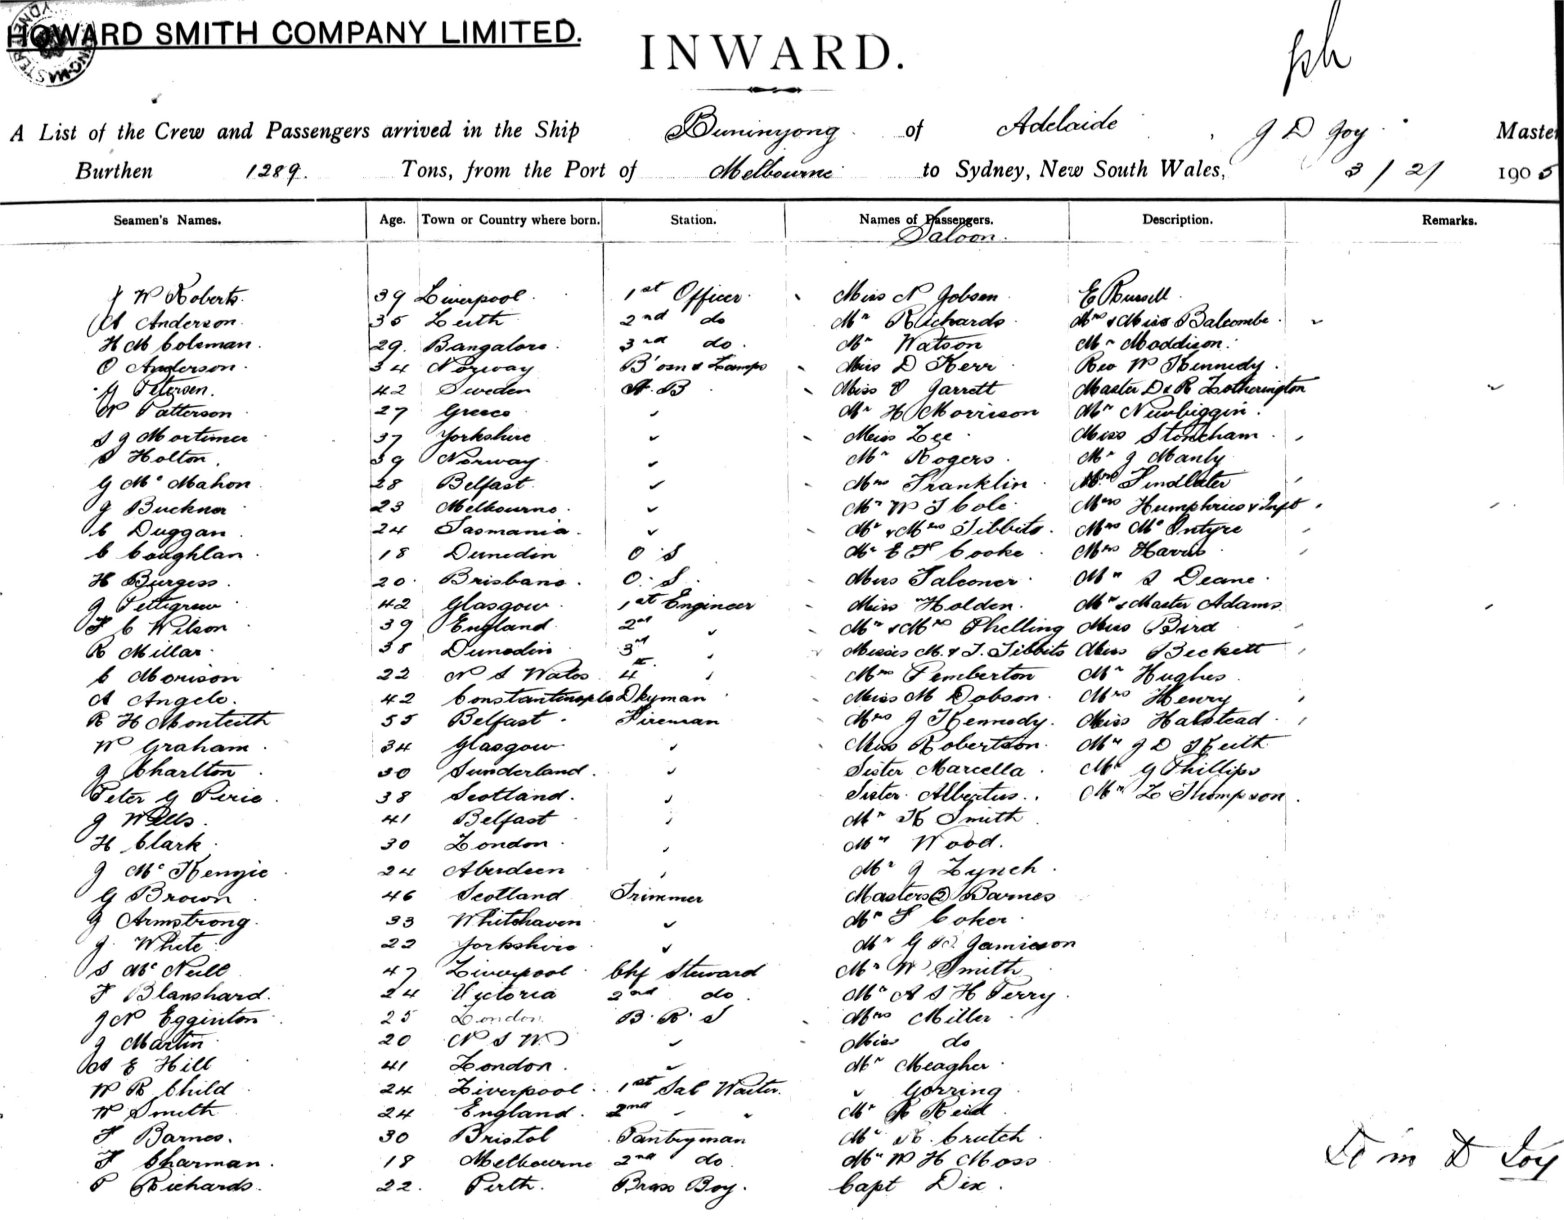 HOWARD SMITH COMPANY LIMITED.
INWARD.
A List of the Crew and Passengers arrived in the Ship Buninyong of Adelaide, J D Joy Master
Burthen 1289. Tons, from the Port of Melbourne to Sydney, New South Wales, 3/2/ 1905
Seamen's Names. Age. Town or Country where born. Station. Names of Passengers. Description. Remarks.
Saloon.
J W Roberts. 39 Liverpool 1st Officer Miss N Jobson E Russell
A Anderson. 35 Leith 2nd do Mr Richards Mrs & Miss Balcombe
H M Coleman. 29. Bangalore 3rd do. Mr Watson Mr Maddison.
O Anderson. 34 Norway B'osn & Lamps Miss D Kerr Rev W Kennedy.
Petersen. 42 Sweden A.B Miss V Garrett Master D & R Lotherington
W Patterson 27 Greece Mr H Morrison Mr Newbiggin.
S J Mortimer 37 Yorkshire Miss Lee Miss Stoneham
S Holton. 39 Norway Mr Rogers Mr J Manly
G McMahon 28 Belfast Mrs Franklin Findlater
J Bucknor 23 Melbourne. Mr W T Cole Mrs Humphries & Inft
C Duggan 24 Tasmania. Mr & Mrs Tibbits. Mrs McIntyre
C Coughlan 18 Dunedin O S Mr E F Cooke Mrs Harris
H Burgess. 20 Brisbane. O. S. Miss Falconer Mr S Deane
J Pettigrew 42 Glasgow 1st Engineer Miss Holden. Mr & Master Adams
F C Wilson 39 England 2nd Mr & Mrs Phelling Miss Bird
R Millar 38 Dunedin 3rd Misses M. & T. Tibbits Miss Beckett
C Morison 22 N S Wales 4th Mrs Pemberton Mr Hughes
A Angelo. 42 Constantinople Dkyman Miss M Dobson. Mrs Henry
R H Monteith 55 Belfast Fireman Mrs J Kennedy. Miss Halstead
W Graham 34 Glasgow Miss Robertson. Mr J D Keith
J Charlton 30 Sunderland. Sister Marcella Mr G Phillips
Peter G Pirie 38 Scotland. Sister Albertus. Mr L Thompson.
J Wells. 41 Belfast Mr K Smith
H Clark 30 London Mr Wood.
J McKenzie 24 Aberdeen Mr J Lynch
G Brown 46 Scotland Trimmer Masters (2) Barnes
J Armstrong. 33 Whitehaven Mr F Coker
J. White 22 Yorkshire Mr G Jamieson
S McNeill 47 Liverpool Chf Steward Mr W Smith
F Blanshard. 24 Victoria 2nd do. Mr A S H Terry.
J N Egginton 25 London B. R. S Mrs Miller
J Martin 20 N S W Miss do
A E Hill 41 London. Mr Meagher
W R Child 24 Liverpool 1st Sal Waiter. Gorring
W Smith 24 England. 2nd Mr R Reid
F Barnes. 30 Bristol Pantryman Mr Crutch
F Charman. 18 Melbourne 2nd do. Mr W H Moss
P Richards. 22. Perth. Brass Boy. Capt Dix.
D Joy